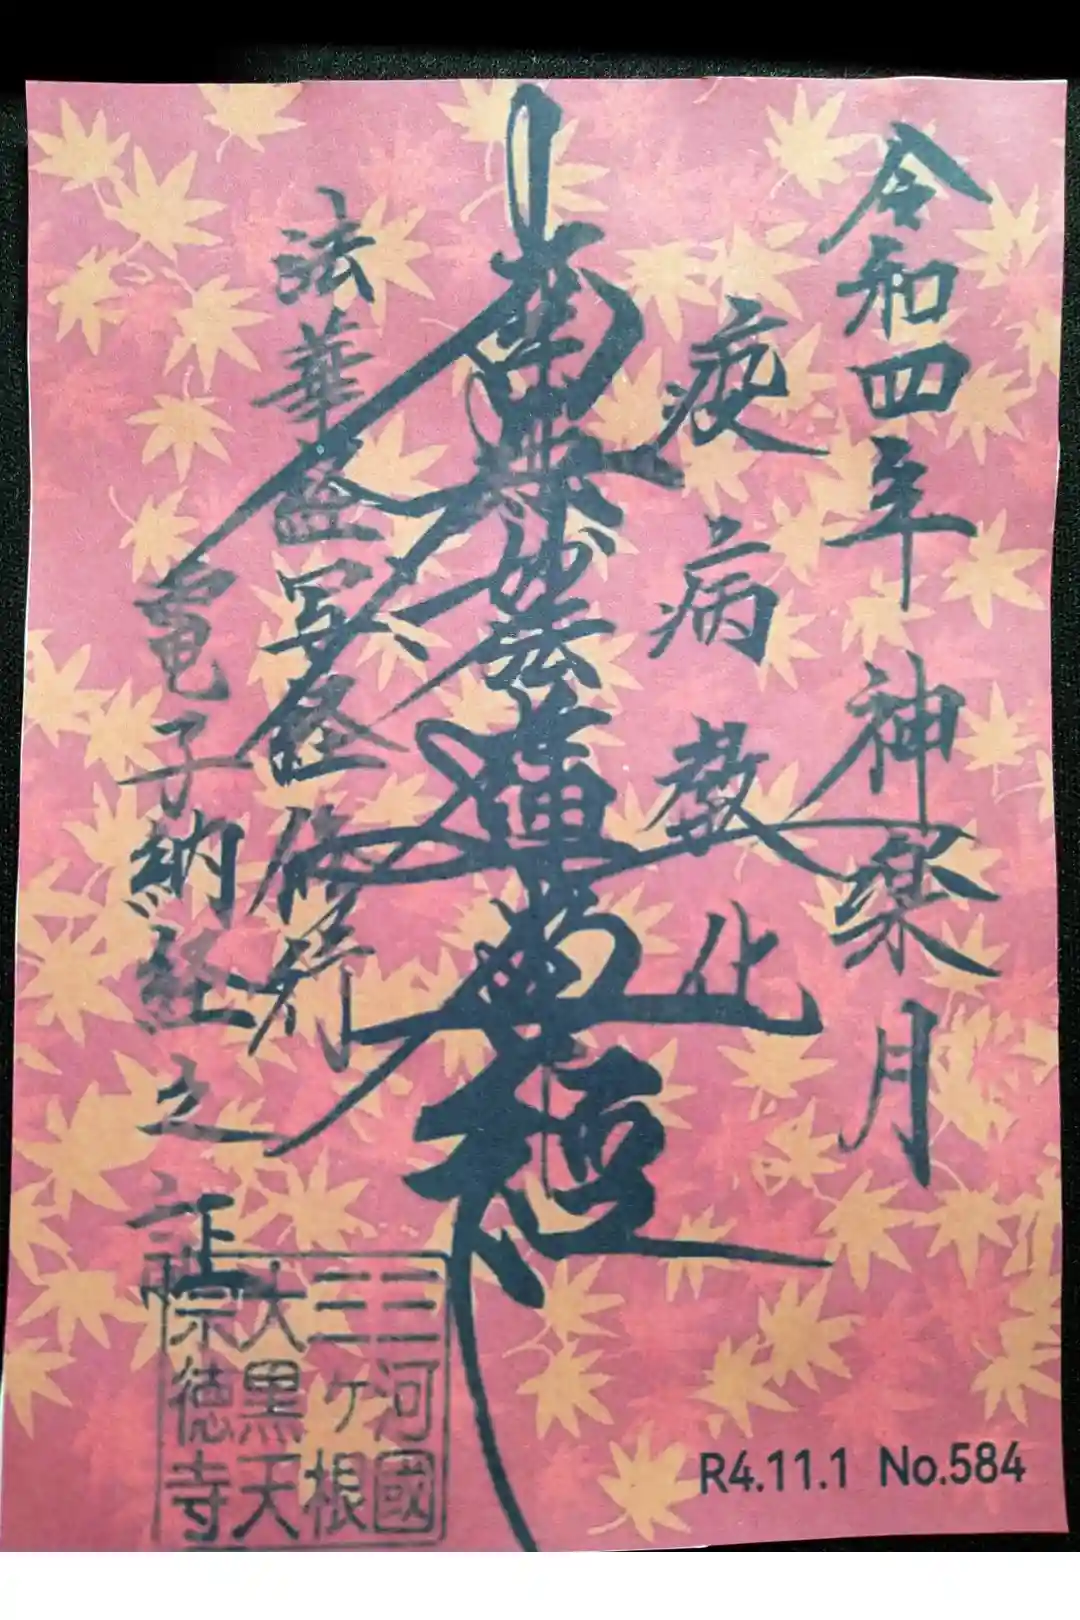 令和四年 神楽月
疫病教化
南無妙法蓮華経
法華
写経修行
竜子納経之証
三河國
三ヶ根
大黒天
宗徳寺
R4.11.1 No.584